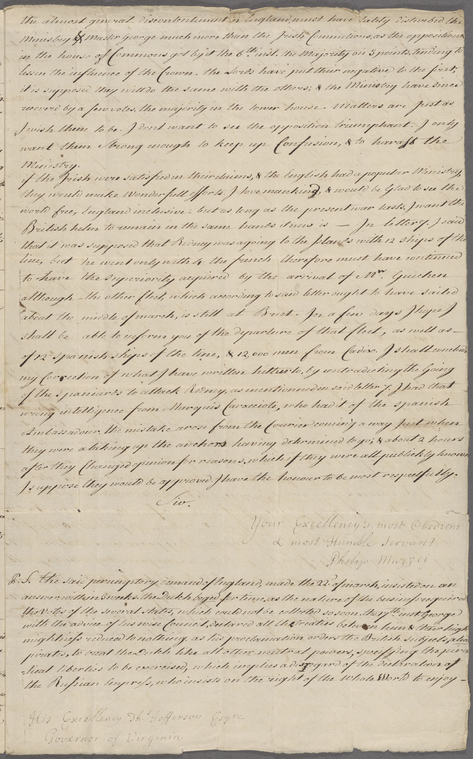 the almost general discontentment in England, must have lately disturbed the
Ministry & Master George much more than the Irish Commotions, as the opposition
in the house of Commons got by the 6th inst. the Majority on 3 points, tending to
lessen the influence of the Crown. the Lords have put their negative to the first,
it is supposed they will do the same with the others; & the Ministry have since
recovered by a few votes, the majority in the lower house. Matters are just as
I wish them to be. I don't want to see the opposition triumphant. I only
want them strong enough to keep up Confusion, & to harass the
Ministry.
If the Irish were satisfied in their claims, & the English had a popular Ministry,
they would make Wonderfull efforts. I love mankind, & would be Glad to see the
world free, England inclusive: but as long as the present war lasts, I want the
British helm to remain in the same hands it now is — In letter 7. I said
that it was supposed that Rodney was agoing to the Islands with 12 ships of the
line, but he went only with 4. the french therefore must have continued
to have the superiority acquired by the arrival of Mr. Guichen
although the other fleet, which according to said letter ought to have sailed
about the middle of march, is still at Brest. In a few days I hope I
shall be able to inform you of the departure of that fleet, as well as
of 12 Spanish ships of the line, & 12,000 men from Cadix. I shall conclude
my Correction of what I have written hitherto, by contradicting the Going
of the Spaniards to attack Rodney, as mentioned in said letter 7. I had that
wrong intelligence from Marquis Caraccioli, who had it of the Spanish
Ambassadour. the mistake arose from the Courier coming away just when
they were a taking up the anchors having determined to go; & about 2 hours
after they Changed opinion for reasons, which if they were all publickly known
I suppose they would be approved. I have the honour to be most respectfully
Sir.
Your Excellency's most Obedient
& most Humble Servant
Philip Mazzei
P. S. the peremptory demand of England, made the 21st of march, insisted on an
answer within 3 weeks. the dutch begged for time, as the nature of the business required
the votes of the several states, which could not be collected so soon.
with the advice of his wise Council, declared all the treaties between him & their high
mightinesses reduced to nothing. as his proclamation orders the British subjects, also
privateers, to treat the Dutch like all other neutral powers, specifying the
liberties to be exercised, which implies a disregard of the declarations of
the Russian Empress, who insists on the right of the whole World to enjoy
His Excellency Ths. Jefferson Esqr.
Governor of Virginia